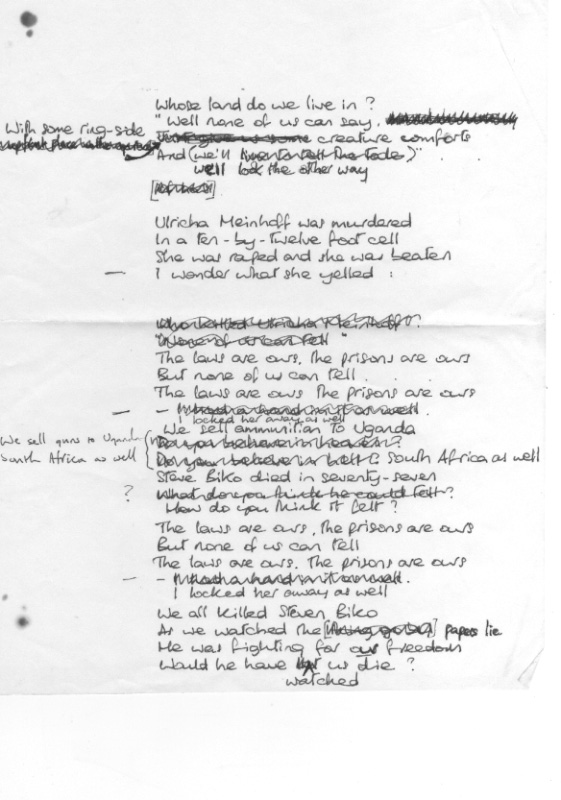 Whose land do we live in ?
"Well none of us can say.
With some ring-side
creature comforts
And (we'll
we'll look the other way
Ulricha Meinhoff was murdered
In a ten-by-twelve foot cell
She was raped and she was beaten
— I wonder what she yelled :
Who killed Ulricha Meinhoff ?
"None of us can tell"
The laws are ours, the prisons are ours
But none of us can tell.
The laws are ours the prisons are ours
— -
I locked her away as well
We sell ammunition to Uganda
We sell guns to Uganda
Do you believe in heaven ?
South Africa as well
Do you believe in hell ? South Africa as well
Steve Biko died in seventy-seven
? What do you think he could tell ?
How do you think it felt ?
The laws are ours, the prisons are ours
But none of us can tell
The laws are ours. The prisons are ours
— -
I locked her away as well
We all killed Steven Biko
As we watched the papers lie
He was fighting for our freedom
Would he have us die ?
watched